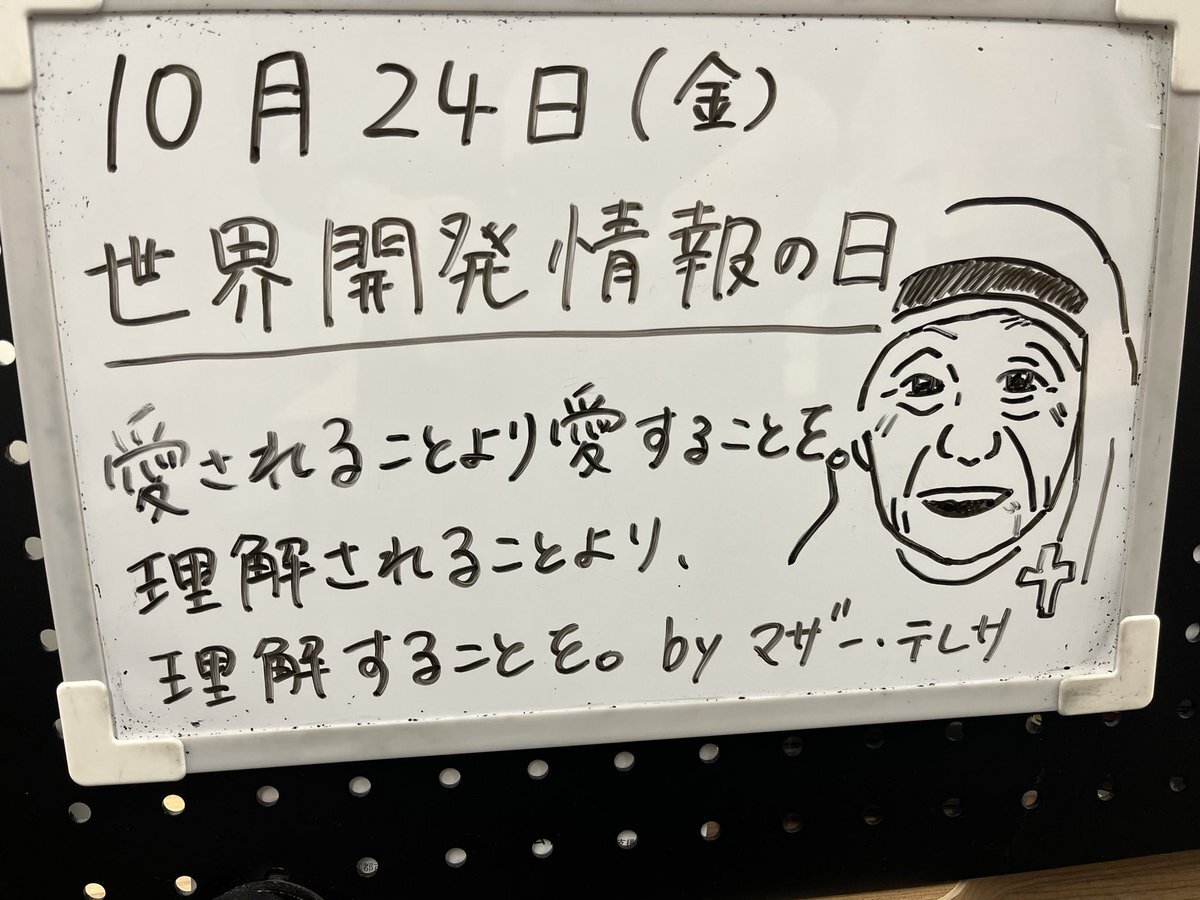 10月24日(金)
世界開発情報の日
愛されることより愛することを。
理解されることより、
理解することを。by マザー・テレサ